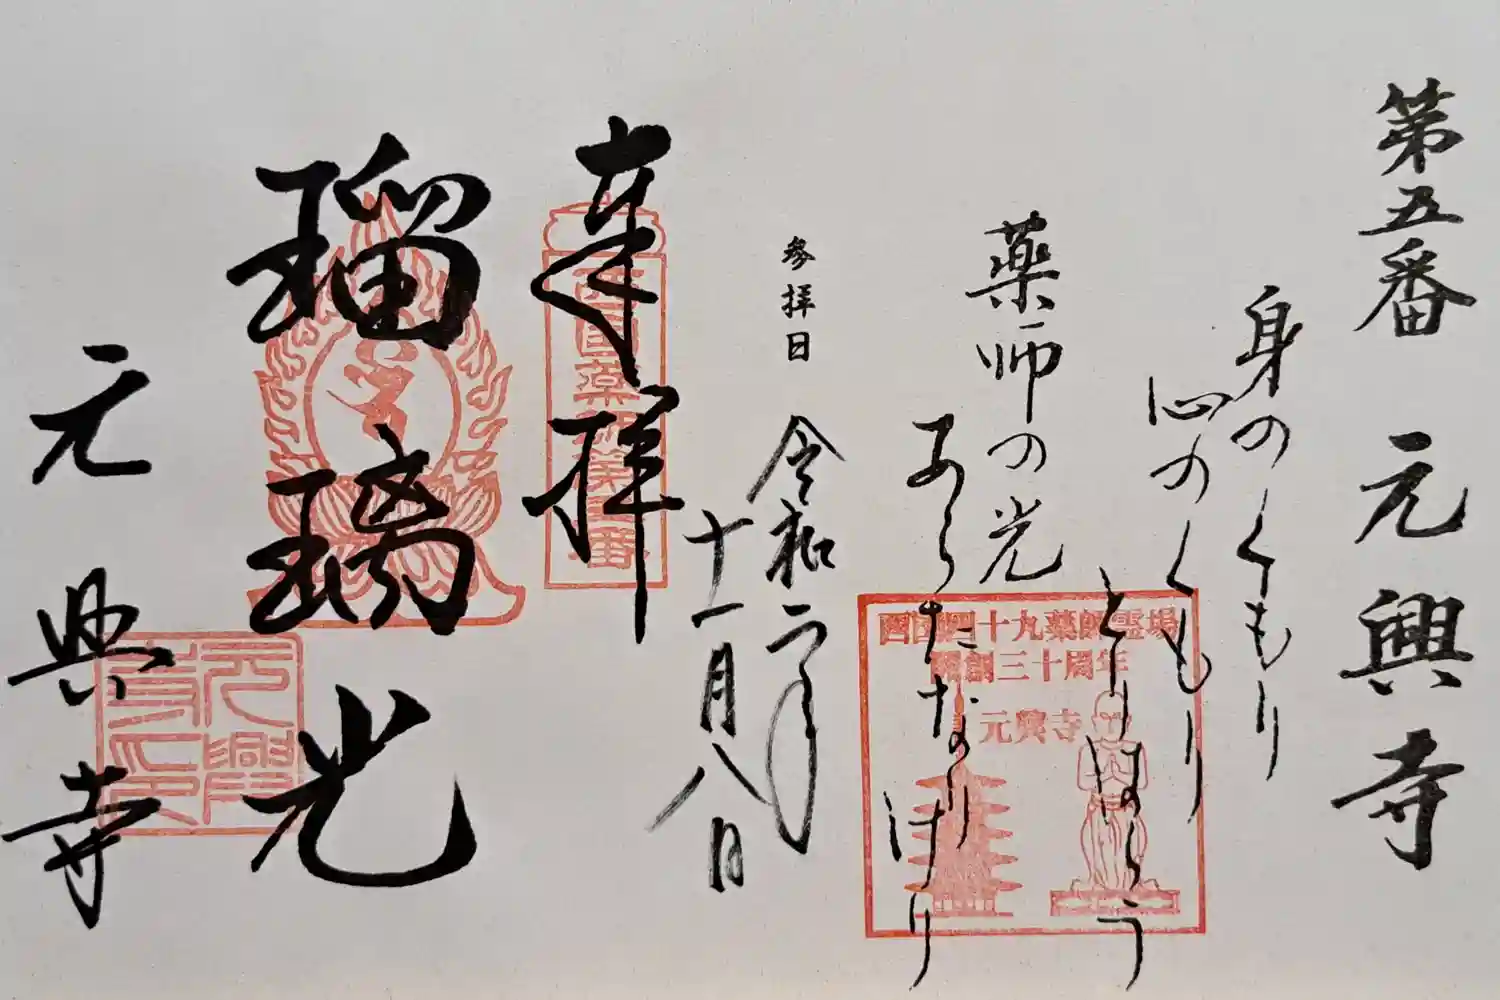 第五番 元興寺
身のくもり
心のくもり
とりはらう
薬師の光
あらたなりけり
西国四十九薬師霊場
開創三十周年
元興寺
参拝日 令和二年
十一月八日
奉拝
西国薬師第五番
瑠璃光
元興寺
元興寺印